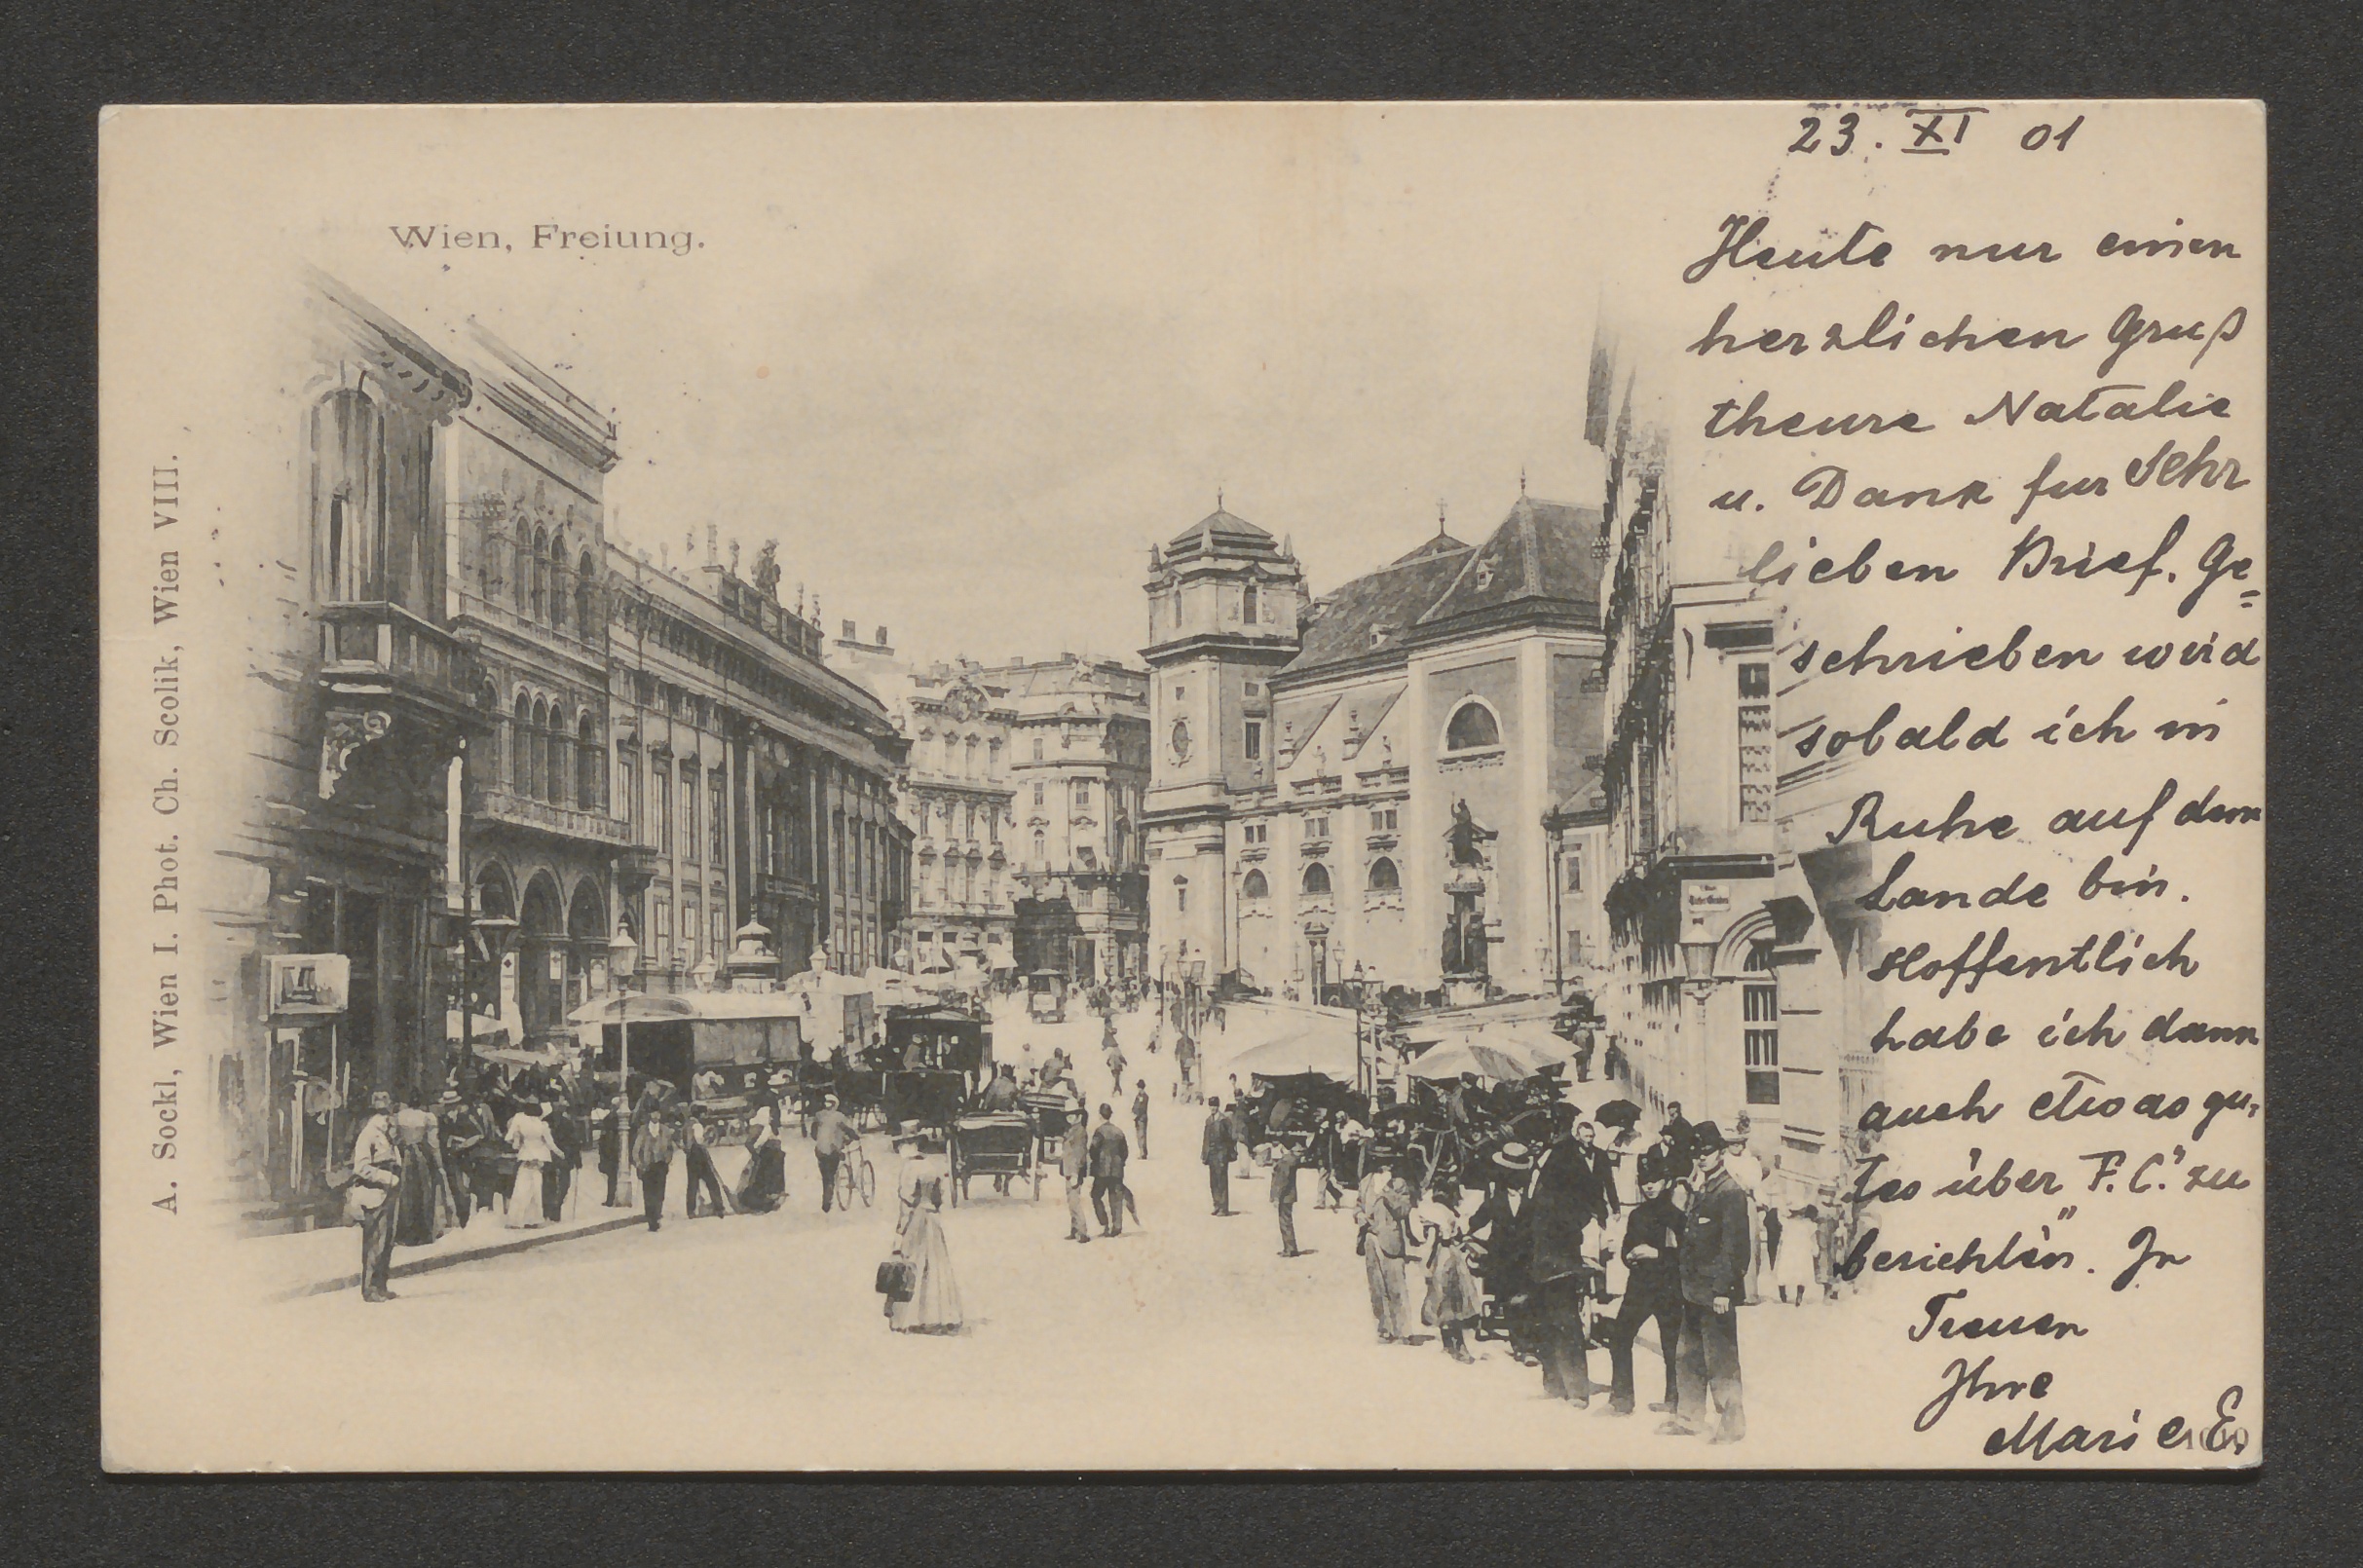 23. XI 01
Wien, Freiung.
Heute nur einen
herzlichen Gruß
theure Natalie
u. Dank fur Ihr
lieben Brief. Ge=
schrieben wird
sobald ich in
Ruhe auf dem
Lande bin.
Hoffentlich
habe ich dann
auch etwas gu,
tes über "F. C." zu
berichten. In
Treuen
Ihre
Marie E.
A. Sockl, Wien I. Phot. Ch. Scolik, Wien VIII.